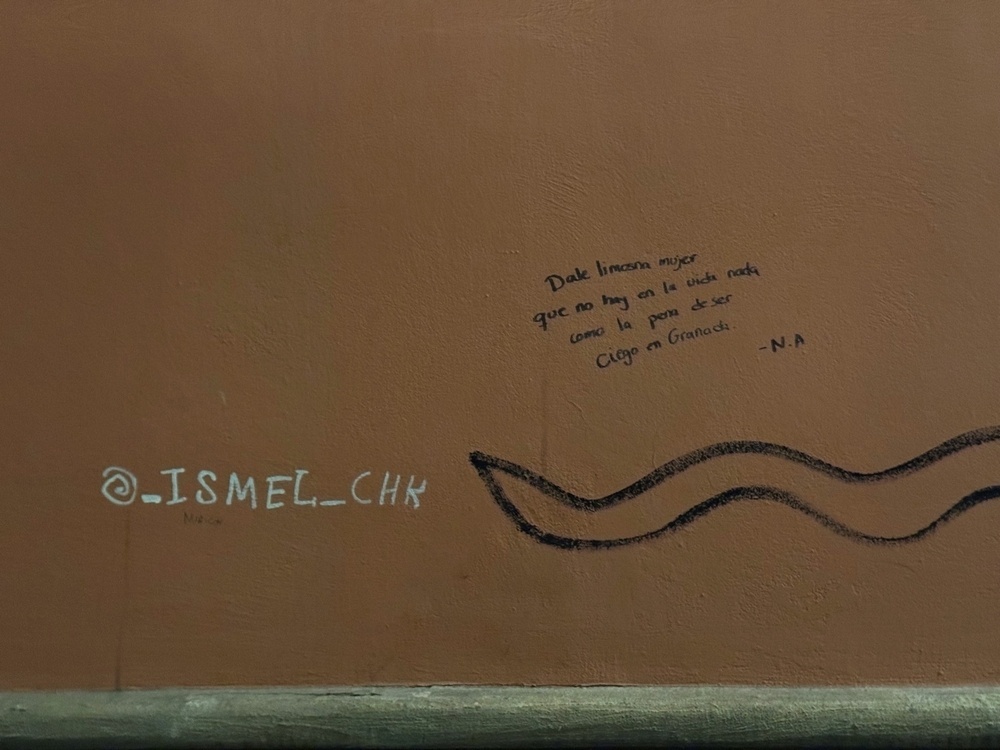 Dale limosna mujer
que no hay en la vida nada
como la pena de ser
Ciego en Granada.
-N.A
@_ISMEL_CHK